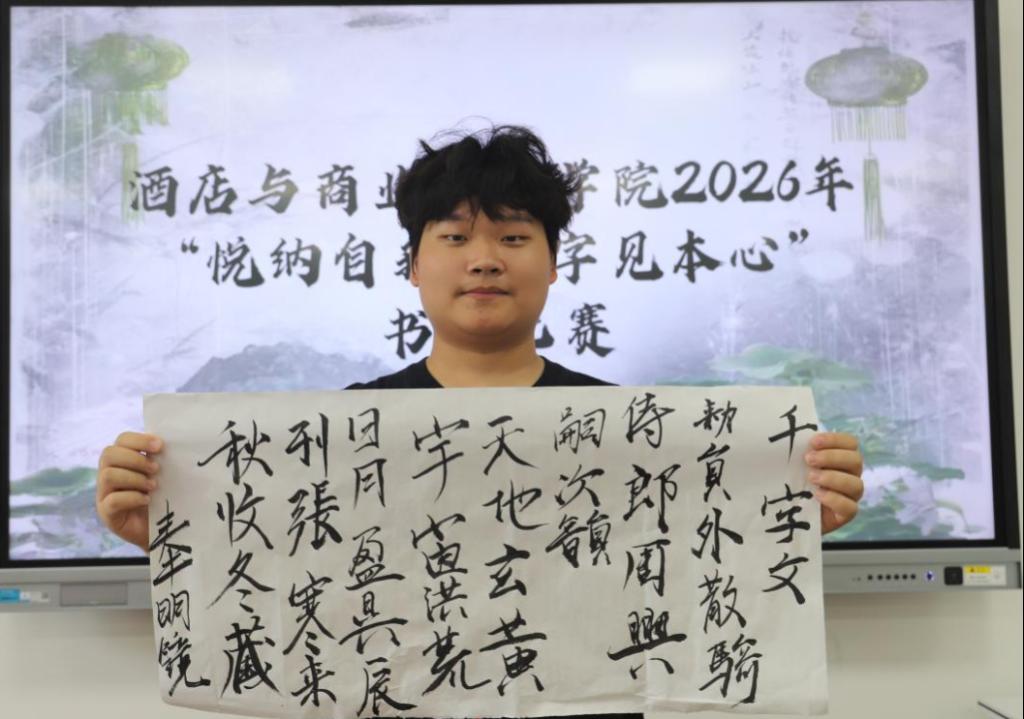 酒店与商业学院2026年
“悦纳自字见本心”
书赛
千字文
勅員外散騎
侍郎周興
嗣次韻
天地玄黄
宇宙洪荒
日月盈昃辰
列張寒来
秋收冬藏
奉明鏡